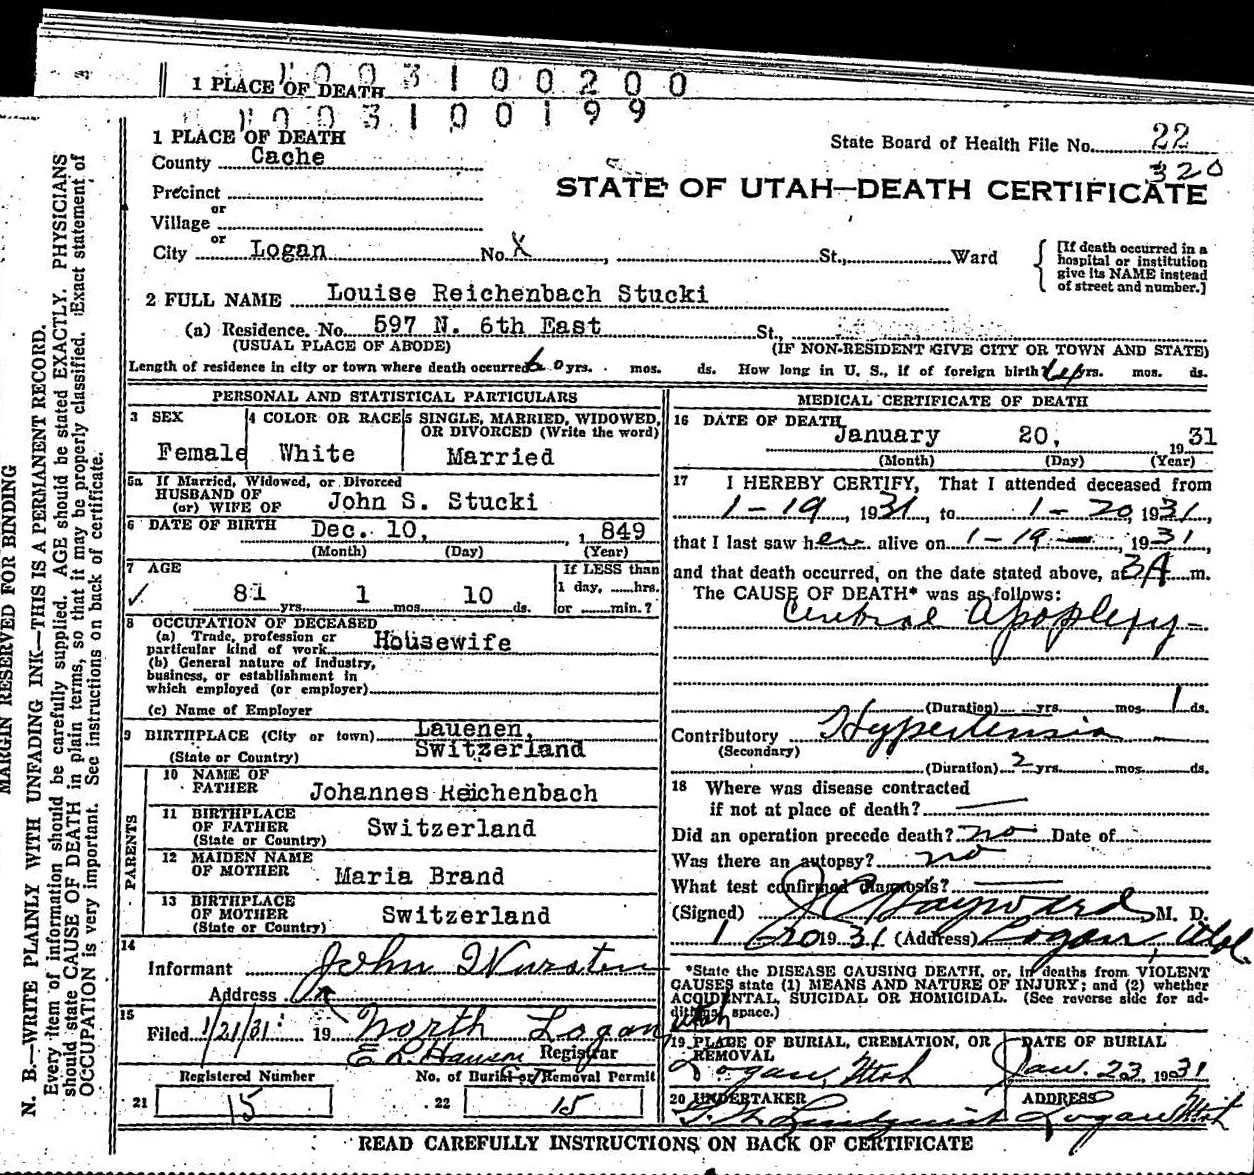 1 PLACE OF DEATH
0 0 3 1 0 0 2 0 0
0 0 3 1 0 0 1 9 9
MARGIN RESERVED FOR BINDING
N. B.—WRITE PLAINLY WITH UNFADING INK—THIS IS A PERMANENT RECORD.
Every item of information should be carefully supplied. AGE should be stated EXACTLY. PHYSICIANS
should state CAUSE OF DEATH in plain terms, so that it may be properly classified. Exact statement of
OCCUPATION is very important. See instructions on back of certificate.
1 PLACE OF DEATH
State Board of Health File No. 22
320
County Cache
STATE OF UTAH—DEATH CERTIFICATE
Precinct
or
Village
or
City Logan No. X , St., Ward
[If death occurred in a
hospital or institution
give its NAME instead
of street and number.]
2 FULL NAME Louise Reichenbach Stucki
(a) Residence. No. 597 N. 6th East St.,
(USUAL PLACE OF ABODE) (IF NON-RESIDENT GIVE CITY OR TOWN AND STATE)
Length of residence in city or town where death occurred 60 yrs. mos. ds. How long in U. S., if of foreign birth? yrs. mos. ds.
PERSONAL AND STATISTICAL PARTICULARS
3 SEX
Female
4 COLOR OR RACE
White
5 SINGLE, MARRIED, WIDOWED,
OR DIVORCED (Write the word)
Married
5a If Married, Widowed, or Divorced
HUSBAND OF
(or) WIFE OF John S. Stucki
6 DATE OF BIRTH Dec. 10, 1849
(Month) (Day) (Year)
7 AGE
✓ 81 yrs. 1 mos. 10 ds.
If LESS than
1 day, hrs.
or min.?
8 OCCUPATION OF DECEASED
(a) Trade, profession or
particular kind of work Housewife
(b) General nature of industry,
business, or establishment in
which employed (or employer)
(c) Name of Employer
9 BIRTHPLACE (City or town) Lauenen,
(State or Country) Switzerland
PARENTS
10 NAME OF
FATHER Johannes Reichenbach
11 BIRTHPLACE
OF FATHER Switzerland
(State or Country)
12 MAIDEN NAME
OF MOTHER Maria Brand
13 BIRTHPLACE
OF MOTHER Switzerland
(State or Country)
14
Informant John
Address
North Logan Utah
15
Filed 1/21/31 19
E L Hansen Registrar
Registered Number
21 15
No. of Burial or Removal Permit
22 15
MEDICAL CERTIFICATE OF DEATH
16 DATE OF DEATH
January 20, 1931
(Month) (Day) (Year)
17 I HEREBY CERTIFY, That I attended deceased from
1-19, 1931, to 1-20, 1931,
that I last saw her alive on 1-19, 1931,
and that death occurred, on the date stated above, at 3A m.
The CAUSE OF DEATH* was as follows:
Cerebral Apoplexy
(Duration) yrs. mos. 1 ds.
Contributory Hypertension
(Secondary)
(Duration) 2 yrs. mos. ds.
18 Where was disease contracted
if not at place of death?
Did an operation precede death? no Date of
Was there an autopsy? no
What test confirmed diagnosis?
(Signed) J C Hayward M. D.
1 20 1931 (Address) Logan, Utah.
*State the DISEASE CAUSING DEATH, or, in deaths from VIOLENT
CAUSES state (1) MEANS AND NATURE OF INJURY; and (2) whether
ACCIDENTAL, SUICIDAL OR HOMICIDAL. (See reverse side for ad-
ditional space.)
19 PLACE OF BURIAL, CREMATION, OR
REMOVAL
Logan, Utah
DATE OF BURIAL
Jan. 23, 1931
20 UNDERTAKER
Lindquist
ADDRESS
Logan Utah
READ CAREFULLY INSTRUCTIONS ON BACK OF CERTIFICATE